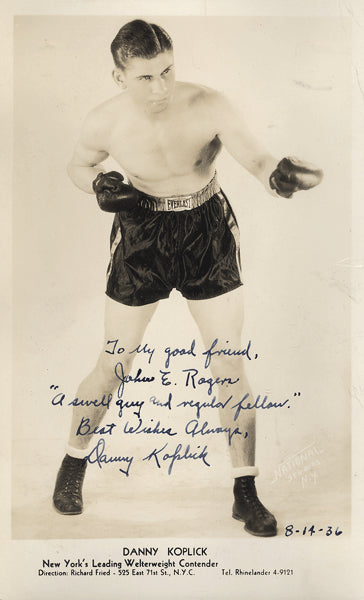 EVERLAST
To My good friend,
John E. Rogers
"A swell guy and regular fellow."
Best Wishes Always,
Danny Koplick
NATIONAL
STUDIOS
N.Y.
8-14-36
DANNY KOPLICK
New York's Leading Welterweight Contender
Direction: Richard Fried - 525 East 71st St., N.Y.C. Tel. Rhinelander 4-9121